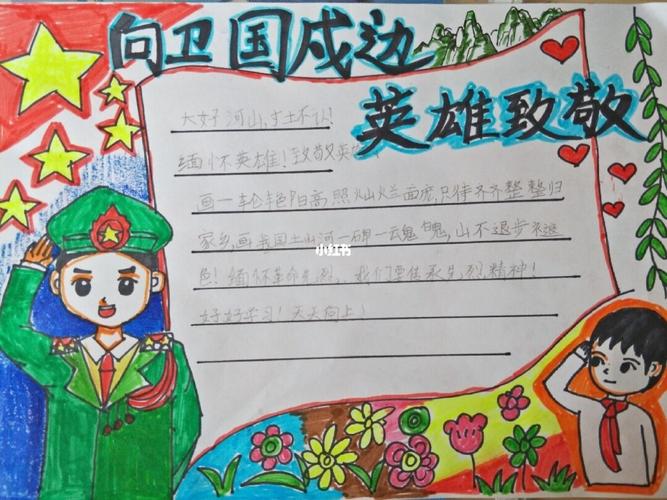 向卫国戍边
英雄致敬
大好河山,寸土不让!
缅怀英雄!致敬英
画一轮艳阳高照灿烂面庞,只待齐齐整整归
家乡,画我国土山河一碑一云魂魄,山不退步不退
色!缅怀革命先烈,我们要传承先烈精神!
好好学习!天天向上!
小红书